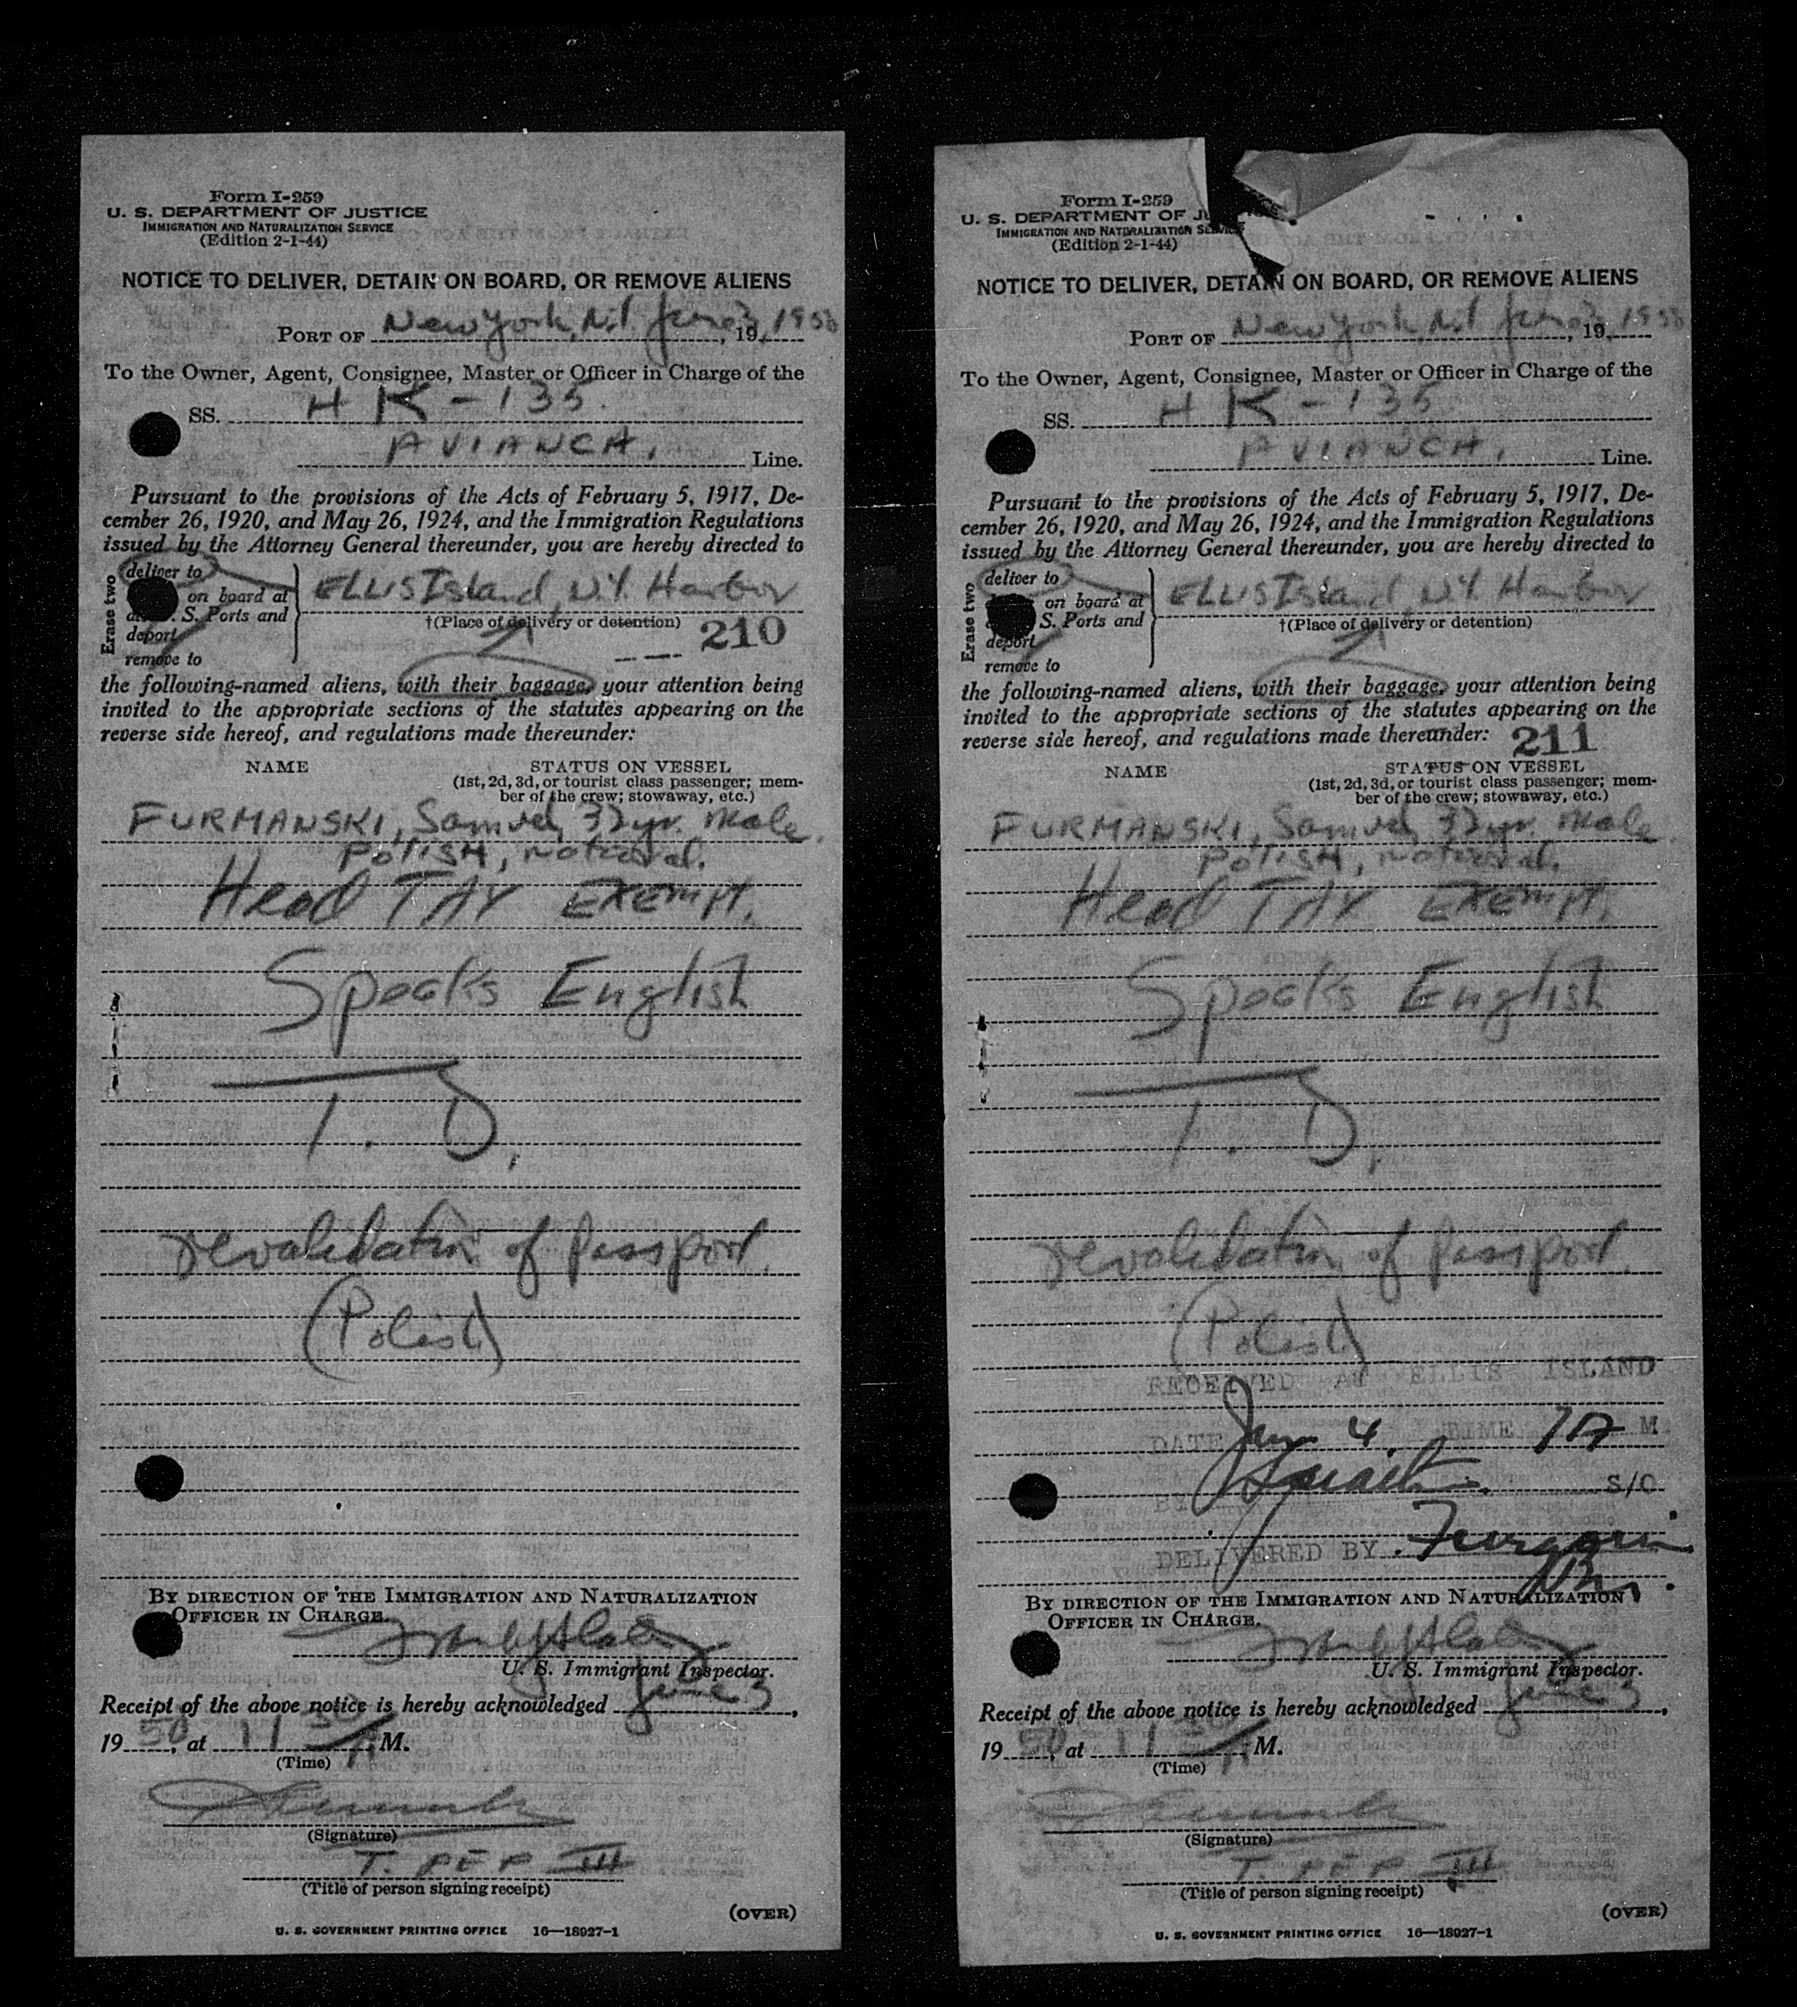 Form I-259
U. S. DEPARTMENT OF JUSTICE
IMMIGRATION AND NATURALIZATION SERVICE
(Edition 2-1-44)
NOTICE TO DELIVER, DETAIN ON BOARD, OR REMOVE ALIENS
PORT OF New York, N.Y. June 3, 19, 1950
To the Owner, Agent, Consignee, Master or Officer in Charge of the
SS. HK-135
AVIANCA, Line.
Pursuant to the provisions of the Acts of February 5, 1917, De-
cember 26, 1920, and May 26, 1924, and the Immigration Regulations
issued by the Attorney General thereunder, you are hereby directed to
Erase two
deliver to
on board at
S. Ports and
deport
remove to
ELLIS Island, N.Y. Harbor
†(Place of delivery or detention)
210
the following-named aliens, with their baggage, your attention being
invited to the appropriate sections of the statutes appearing on the
reverse side hereof, and regulations made thereunder:
NAME STATUS ON VESSEL
(1st, 2d, 3d, or tourist class passenger; mem-
ber of the crew; stowaway, etc.)
FURMANSKI, Samuel, 32 yr. Male.
POLISH, national.
Head TAX EXEMPT.
Speaks English
T. D.
revalidation of passport.
(Polish)
BY DIRECTION OF THE IMMIGRATION AND NATURALIZATION
OFFICER IN CHARGE.
U. S. Immigrant Inspector.
Receipt of the above notice is hereby acknowledged June 3,
19 50, at 11 30 A M.
(Time)
(Signature)
T. PEP III
(Title of person signing receipt)
(OVER)
U. S. GOVERNMENT PRINTING OFFICE 16—18027-1
Form I-259
U. S. DEPARTMENT OF
IMMIGRATION AND NATURALIZATION
(Edition 2-1-44)
NOTICE TO DELIVER, DETAIN ON BOARD, OR REMOVE ALIENS
PORT OF New York, N.Y. June 3, 19, 1950
To the Owner, Agent, Consignee, Master or Officer in Charge of the
SS. HK-135
AVIANCA, Line.
Pursuant to the provisions of the Acts of February 5, 1917, De-
cember 26, 1920, and May 26, 1924, and the Immigration Regulations
issued by the Attorney General thereunder, you are hereby directed to
Erase two
deliver to
on board at
S. Ports and
deport
remove to
ELLIS Island, N.Y. Harbor
†(Place of delivery or detention)
the following-named aliens, with their baggage, your attention being
invited to the appropriate sections of the statutes appearing on the
reverse side hereof, and regulations made thereunder: 211
NAME STATUS ON VESSEL
(1st, 2d, 3d, or tourist class passenger; mem-
ber of the crew; stowaway, etc.)
FURMANSKI, Samuel, 32 yr. Male
POLISH, national.
Head TAX EXEMPT.
Speaks English
T. D.
revalidation of passport.
(Polish)
RECEIVED AT ELLIS ISLAND
DATE 4. TIME M.
BY S/O
DELIVERED BY
BY DIRECTION OF THE IMMIGRATION AND NATURALIZATION
OFFICER IN CHARGE.
U. S. Immigrant Inspector.
Receipt of the above notice is hereby acknowledged June 3,
19 50, at 11 30 A M.
(Time)
(Signature)
T. PEP III
(Title of person signing receipt)
(OVER)
U. S. GOVERNMENT PRINTING OFFICE 16—18027-1